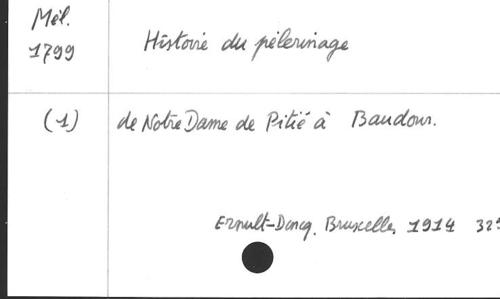 Mél.
1799 Histoire du pèlerinage
(1) de Notre Dame de Pitié à Baudour.
Ernult-Doncq, Bruxelles, 1914 32